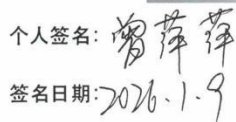 个人签名：曾萍萍
签名日期：2026.1.9